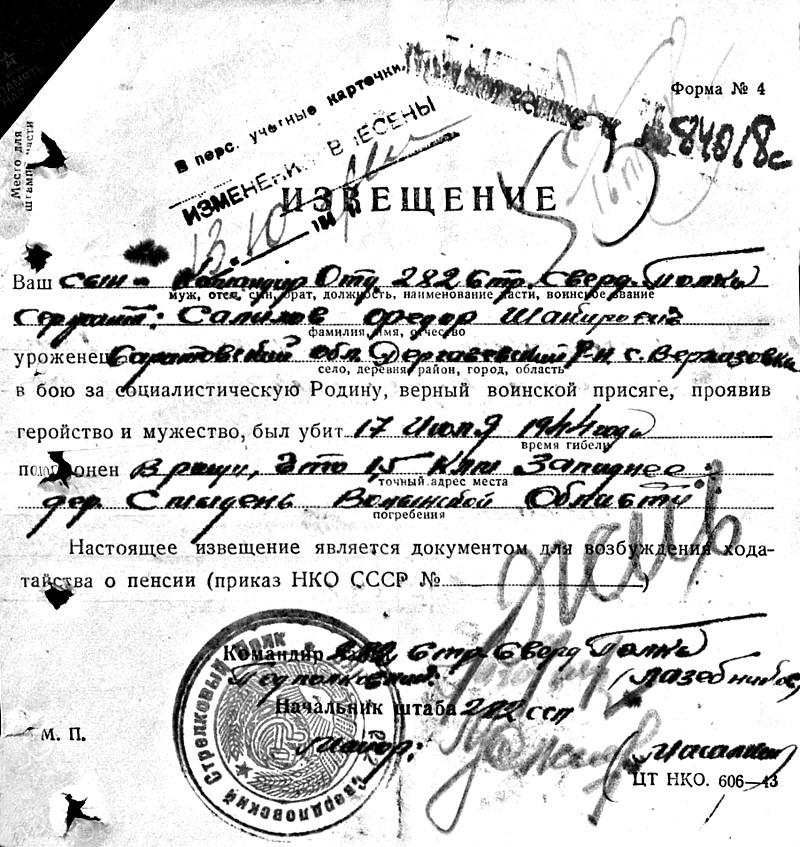 Форма № 4
Место для
штампа части
В перс. учетные карточки
ИЗМЕНЕНИЯ ВНЕСЕНЫ
13 10
84018с
ИЗВЕЩЕНИЕ
Ваш сын - Командир Отд 282 Стр. Сверд. Полка
муж, отец, сын, брат, должность, наименование части, воинское звание
Сержант: Салихов Федор Шакирович
фамилия, имя, отчество
уроженец Саратовский обл. Дергачевский р-н. с. Верхазовка
село, деревня, район, город, область
в бою за социалистическую Родину, верный воинской присяге, проявив
геройство и мужество, был убит 17 Июля 1944 года
время гибели
похоронен В рощи, Это 1,5 Клм Западнее
точный адрес места
дер. Смыдень Волынской Области
погребения
Настоящее извещение является документом для возбуждения хода-
тайства о пенсии (приказ НКО СССР № )
Командир 282 Стр. Сверд Полка
Подполковник: (Лазебников)
Начальник штаба 282 ссп
М. П.
Майор:
ЦТ НКО. 606—43
Свердловский Стрелковый Полк